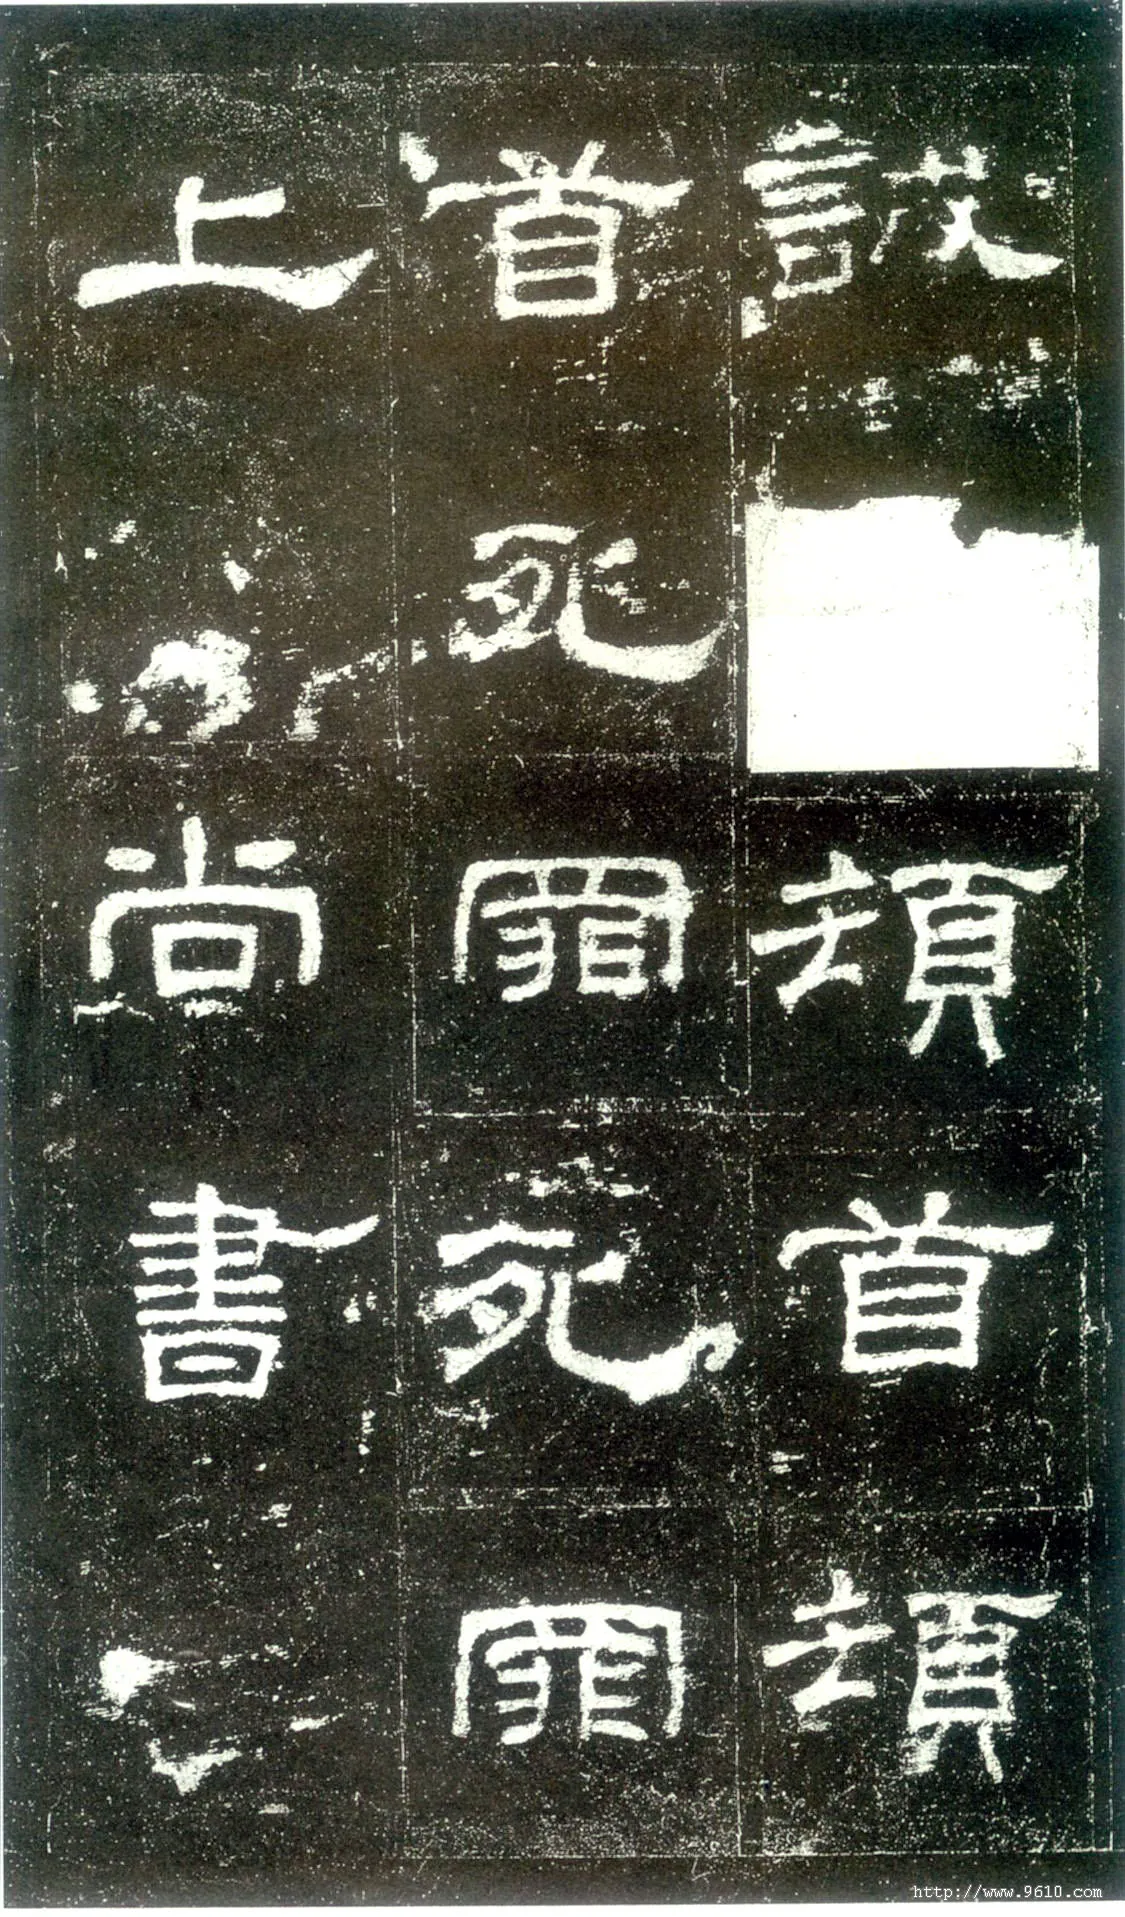 誠頓首頓
首死罪死罪
上尚書
http://www.9610.com